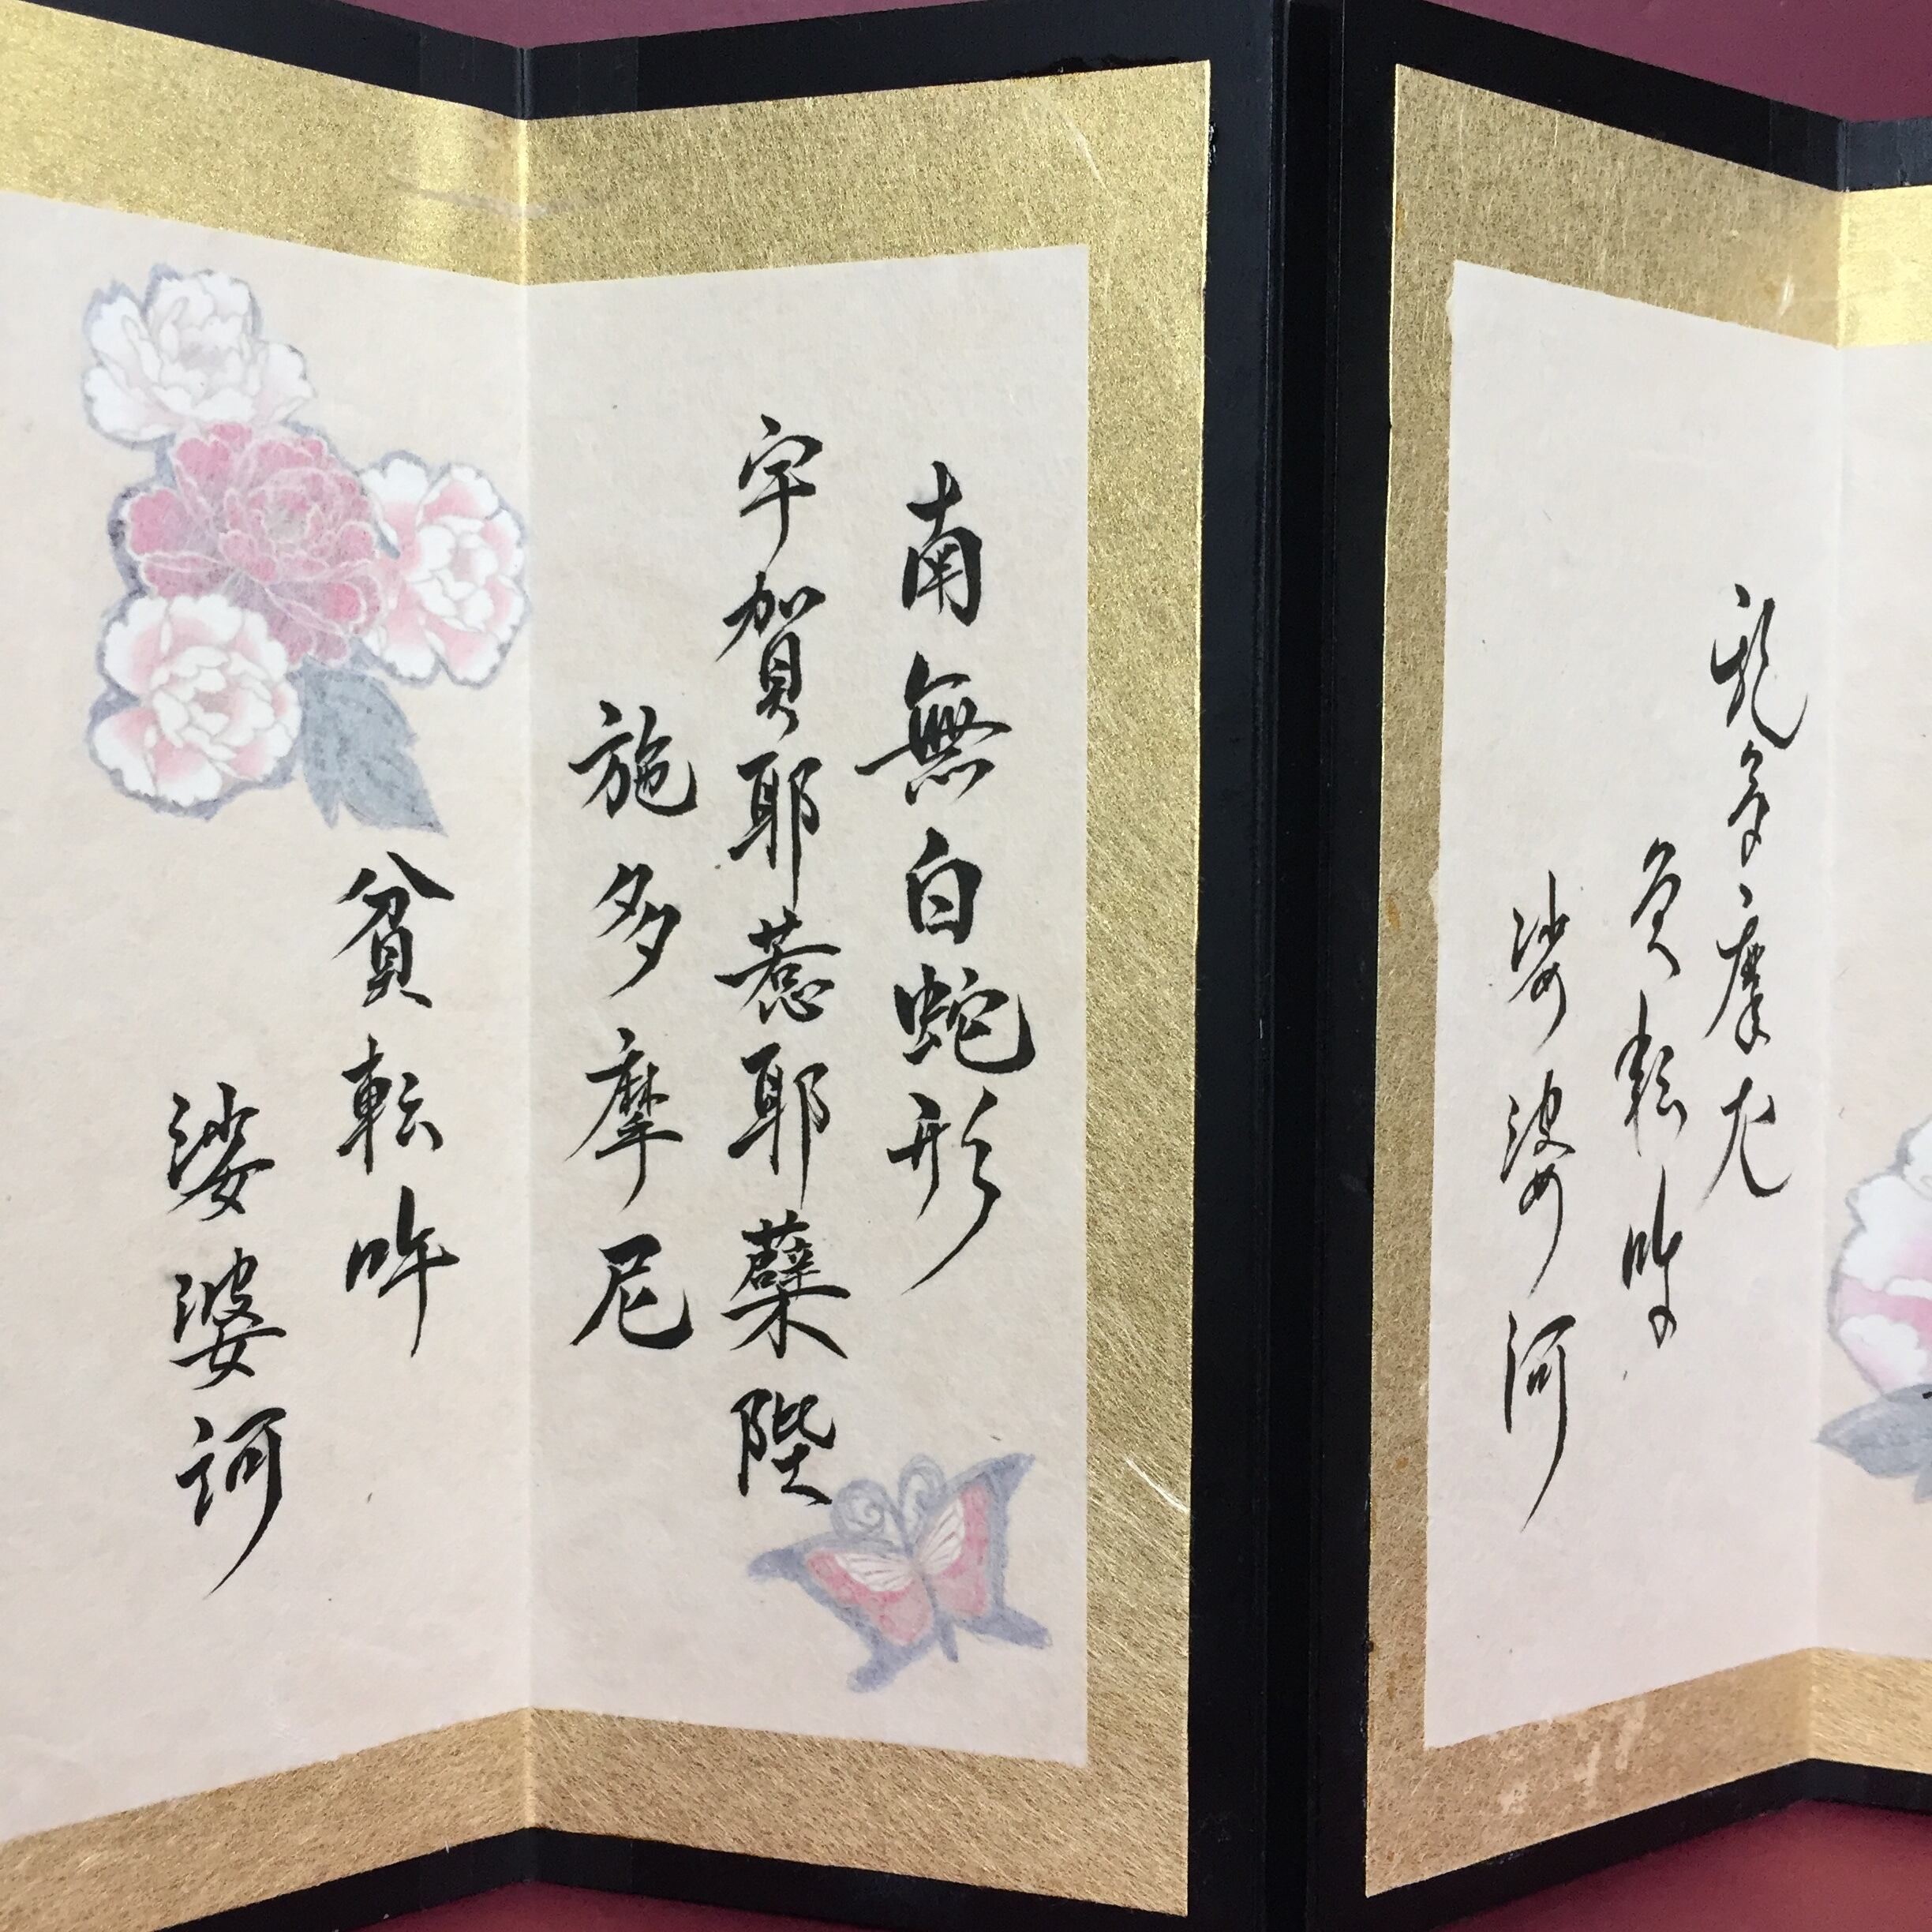 施多摩尼
貧転吽
娑婆訶
南無白蛇形
宇賀耶惹耶蘖陛
施多摩尼
貧転吽
娑婆訶